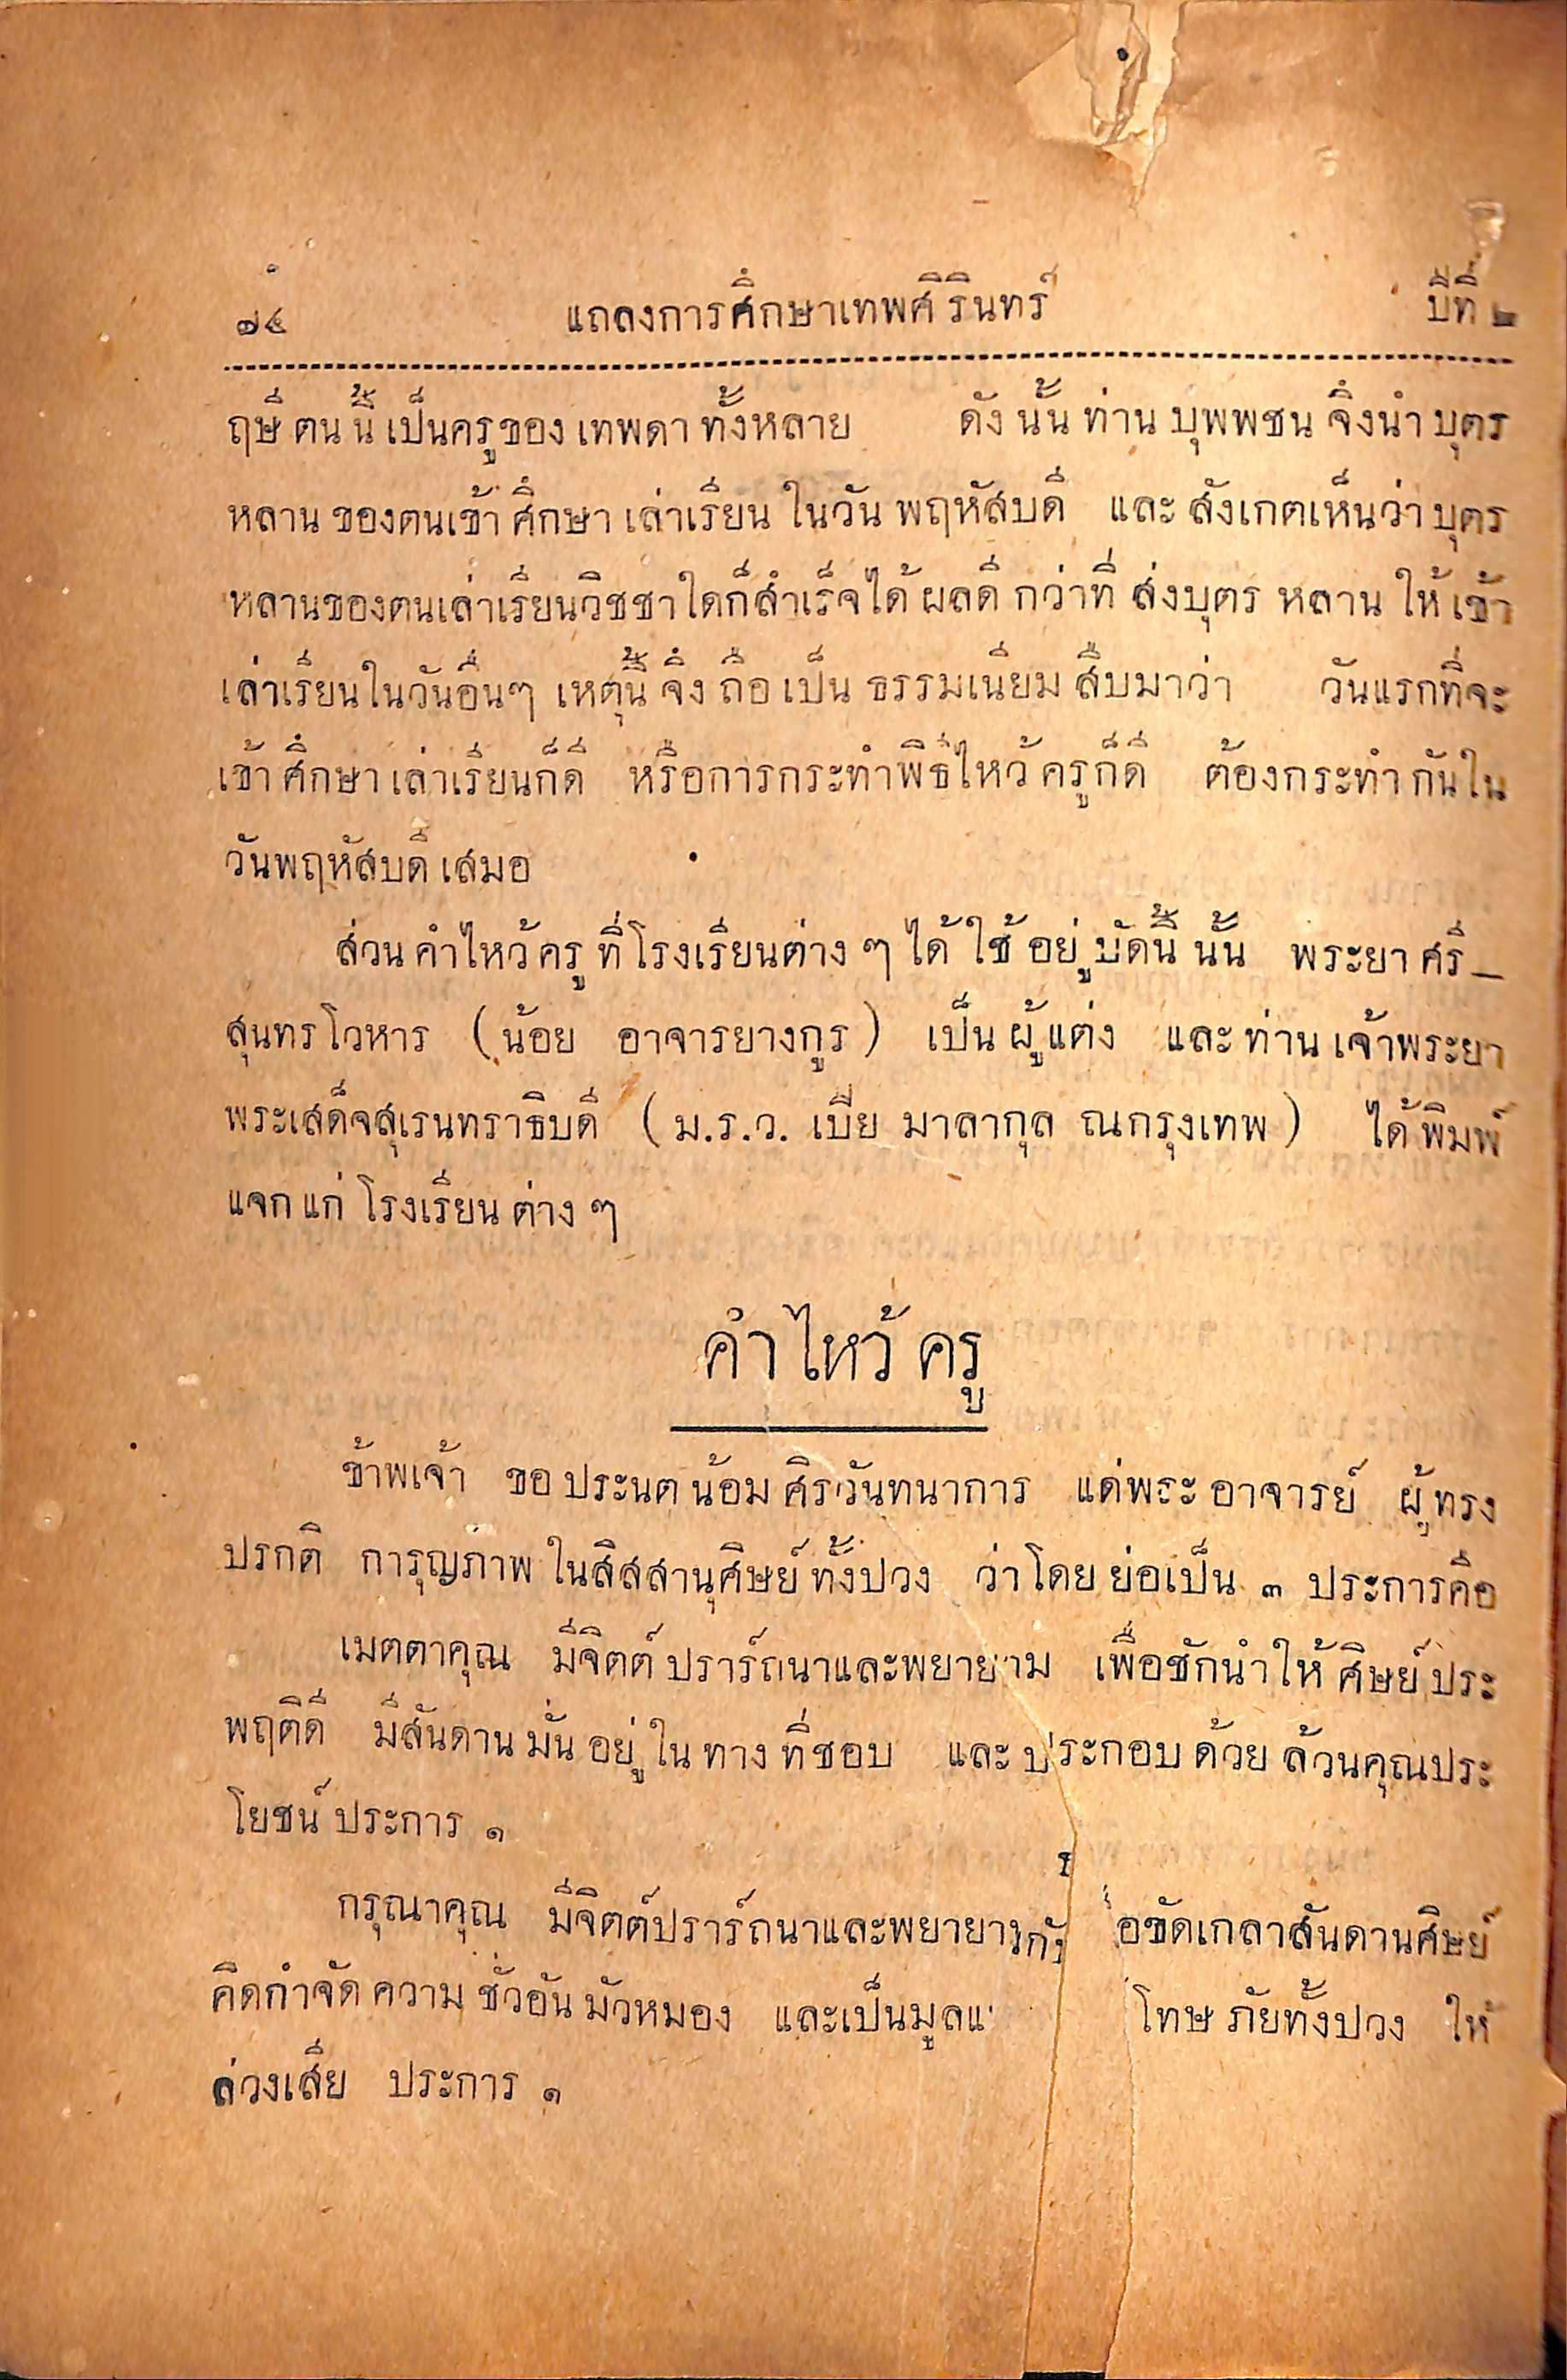 ๑๔ แถลงการศึกษาเทพศิรินทร์ ปีที่ ๒
ฤษีตนนี้เป็นครูของเทพดาทั้งหลาย ดังนั้นท่านบุพพชนจึงนำบุตร
หลานของตนเข้าศึกษาเล่าเรียนในวันพฤหัสบดี และสังเกตเห็นว่าบุตร
หลานของตนเล่าเรียนวิชชาใดก็สำเร็จได้ผลดีกว่าที่ส่งบุตรหลานให้เข้า
เล่าเรียนในวันอื่นๆ เหตุนี้จึงถือเป็นธรรมเนียมสืบมาว่า วันแรกที่จะ
เข้าศึกษาเล่าเรียนก็ดี หรือการกระทำพิธีไหว้ครูก็ดี ต้องกระทำกันใน
วันพฤหัสบดีเสมอ
ส่วนคำไหว้ครูที่โรงเรียนต่าง ๆ ได้ใช้อยู่บัดนี้นั้น พระยาศรี_
สุนทรโวหาร (น้อย อาจารยางกูร) เป็นผู้แต่ง และท่านเจ้าพระยา
พระเสด็จสุเรนทราธิบดี (ม.ร.ว. เปีย มาลากุล ณกรุงเทพ) ได้พิมพ์
แจกแก่โรงเรียนต่าง ๆ
คำไหว้ครู
ข้าพเจ้า ขอประนตน้อมศิรวันทนาการ แด่พระอาจารย์ ผู้ทรง
ปรกติ การุญภาพในสิสสานุศิษย์ทั้งปวง ว่าโดยย่อเป็น ๓ ประการคือ
เมตตาคุณ มีจิตต์ปรารถนาและพยายาม เพื่อชักนำให้ศิษย์ประ
พฤติดี มีสันดานมั่นอยู่ในทางที่ชอบ และประกอบด้วยล้วนคุณประ
โยชน์ ประการ ๑
กรุณาคุณ มีจิตต์ปรารถนาและพยายาม ขัดเกลาสันดานศิษย์
คิดกำจัดความชั่วอันมัวหมอง และเป็นมูล โทษภัยทั้งปวง ให้
ล่วงเสีย ประการ ๑